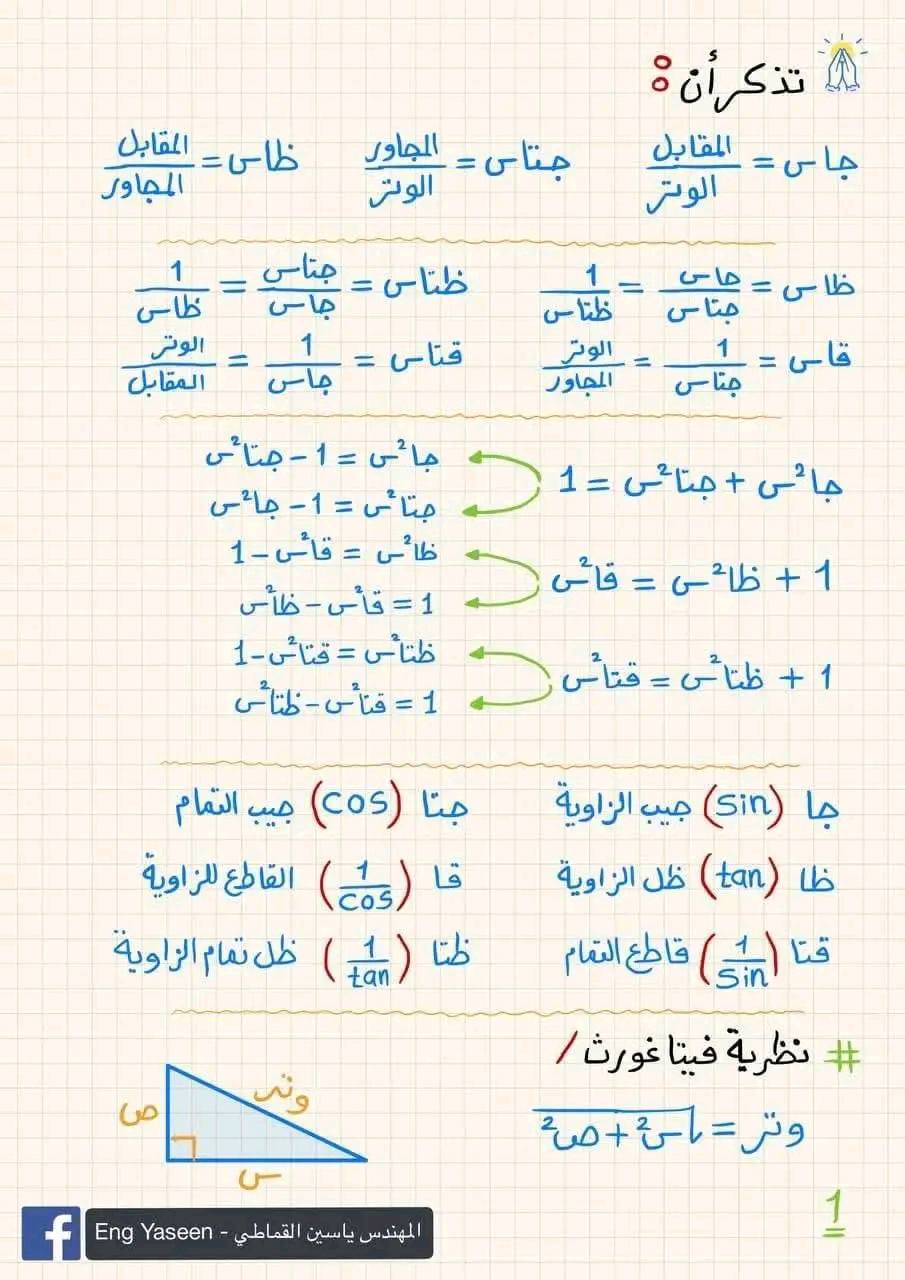 تذكر أن :
جا س = المقابل / الوتر    جتا س = المجاور / الوتر    ظا س = المقابل / المجاور
ظا س = جا س / جتا س = 1 / ظتا س    ظتا س = جتا س / جا س = 1 / ظا س
قا س = 1 / جتا س = الوتر / المجاور    قتا س = 1 / جا س = الوتر / المقابل
جا²س + جتا²س = 1
جا²س = 1 - جتا²س
جتا²س = 1 - جا²س
1 + ظا²س = قا²س
ظا²س = قا²س - 1
1 = قا²س - ظا²س
1 + ظتا²س = قتا²س
ظتا²س = قتا²س - 1
1 = قتا²س - ظتا²س
جا (sin) جيب الزاوية    جتا (cos) جيب التمام
ظا (tan) ظل الزاوية    قا (1/cos) القاطع للزاوية
قتا (1/sin) قاطع التمام    ظتا (1/tan) ظل تمام الزاوية
# نظرية فيتاغورث /
وتر = √(س² + ص²)
وتر
ص
س
1
Eng Yaseen - المهندس ياسين القماطي